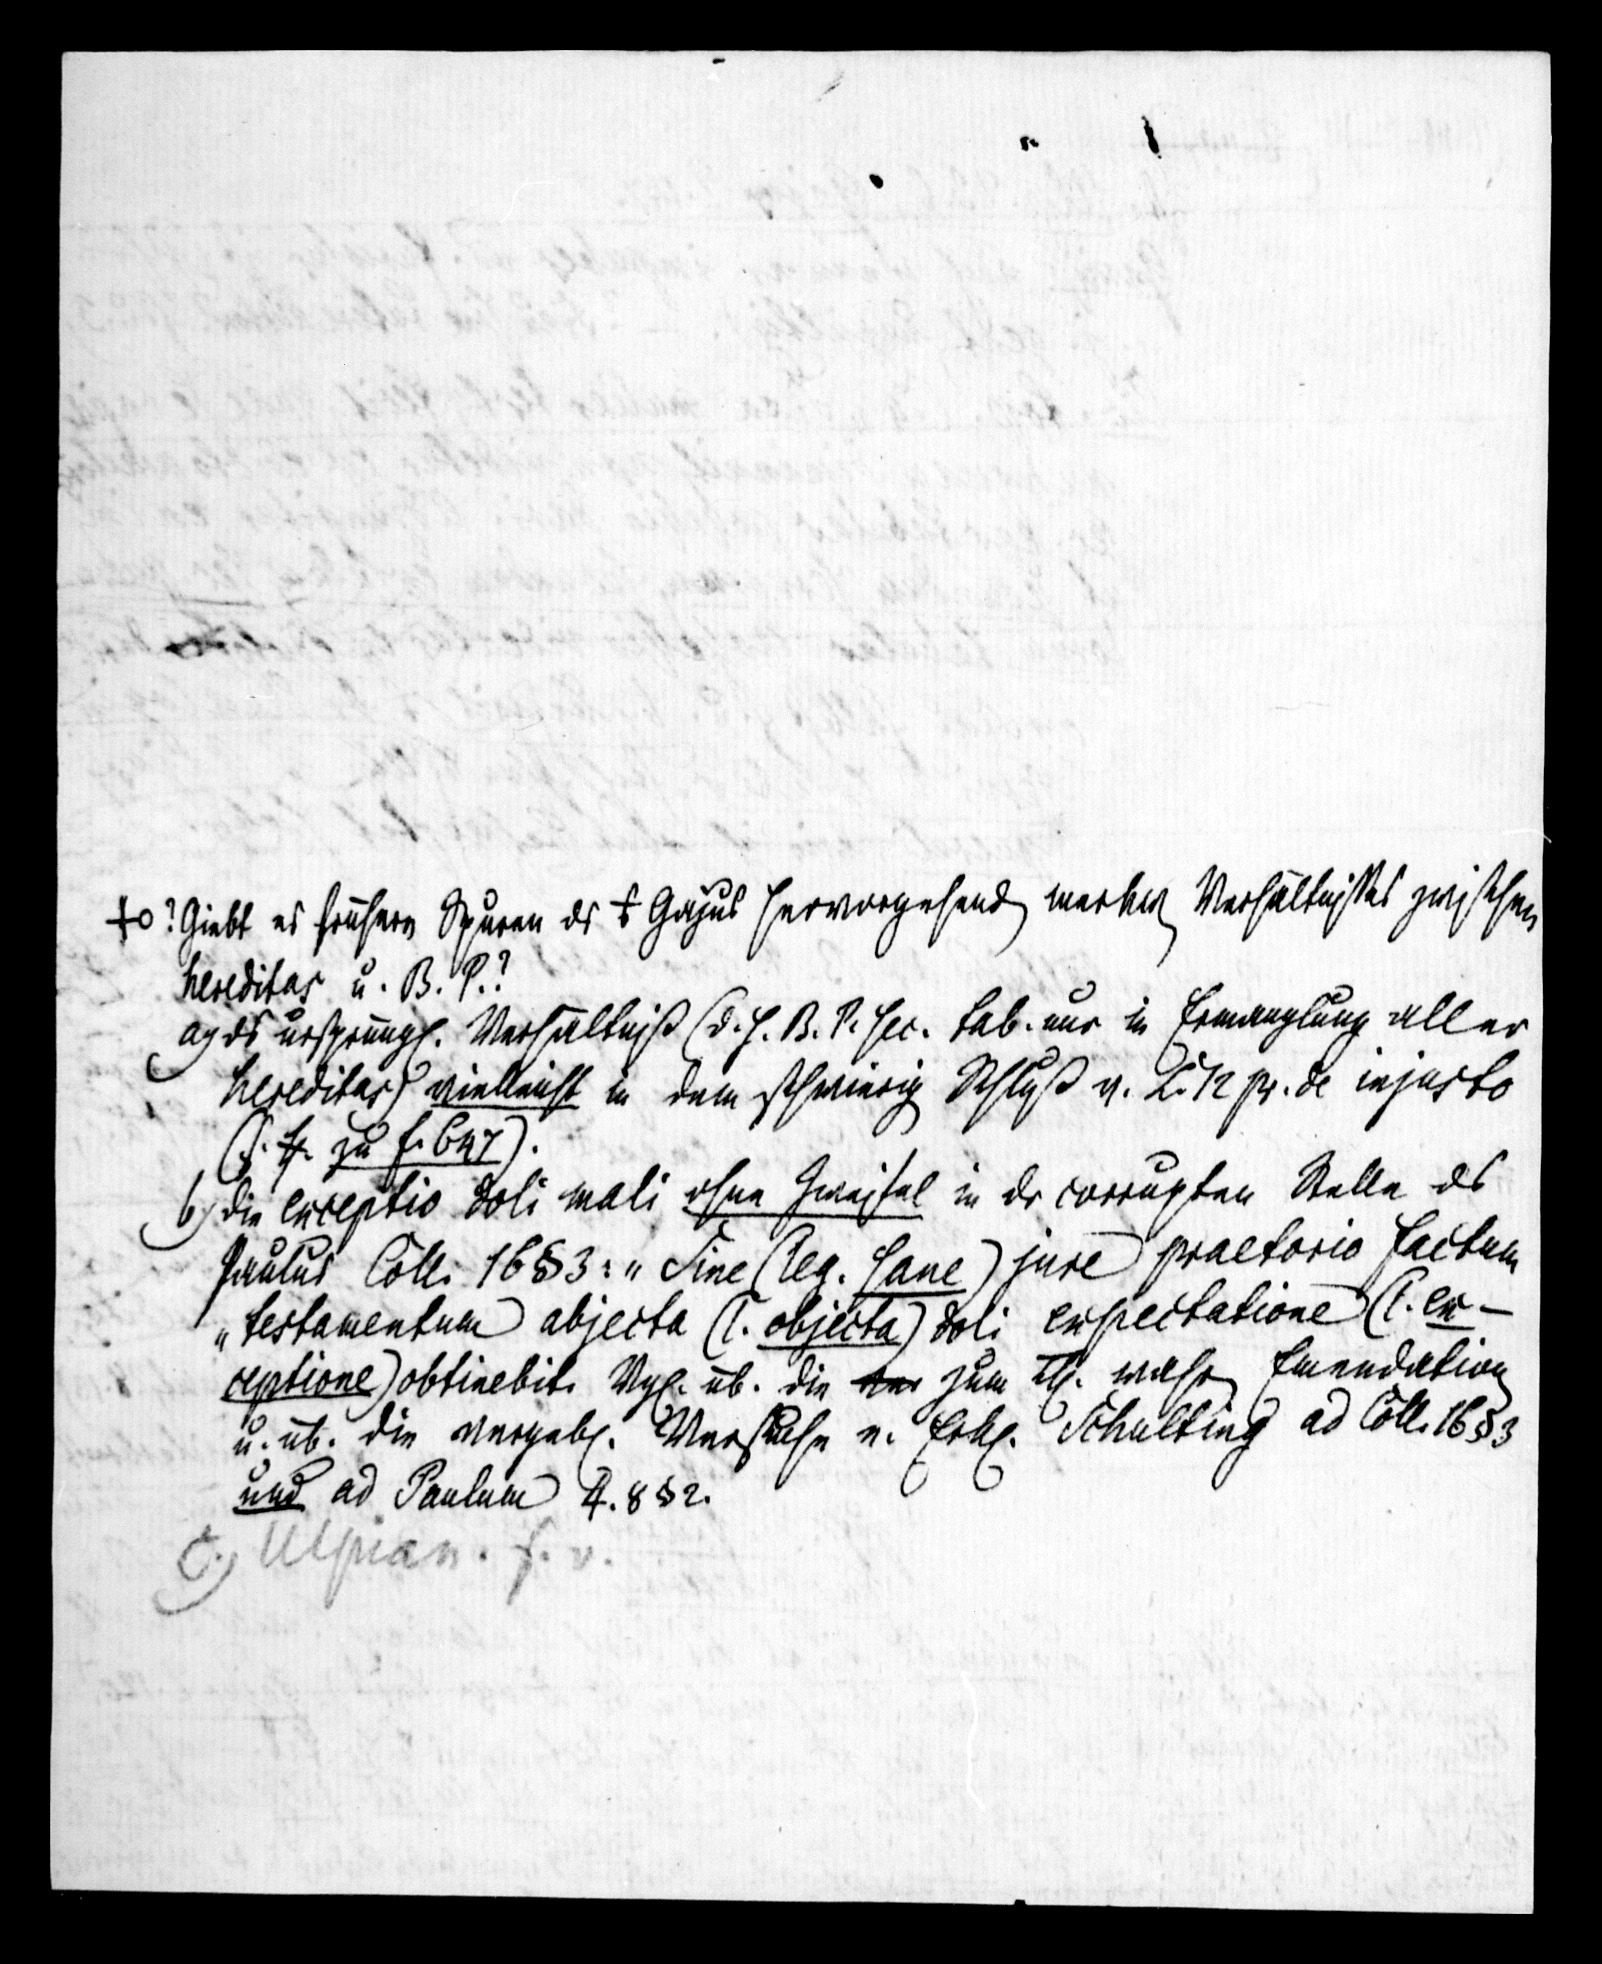 ? Giebt es frühere Spuren ds Gajus hervorgehend merkw Verhältnisses zwischen
hereditas u. B. P.?
a) ds ursprüngl. Verhältniß (d. h. B. P. sec. tab. nur in Ermanglung aller
hereditas) vielleicht in dem schwierig Schluß v. L. 12 pr. de injusto
(s. zu f. 647).
b) die exceptio doli mali ohne Zweifel in dr corrupten Stelle ds
Paulus Coll. 16 § 3: "Sine (leg. sane) jure praetorio factum
"testamentum abjecta (l. objecta) doli expectatione (l. ex-
ceptione) obtinebit. Vgl. üb. die zum Th. wahre Emendation
u. üb. die vergebl. Versuche e. Erkl. Schulting ad Coll. 16 § 3
und ad Paulum 4. 8 § 2.
c) Ulpian. f. v.